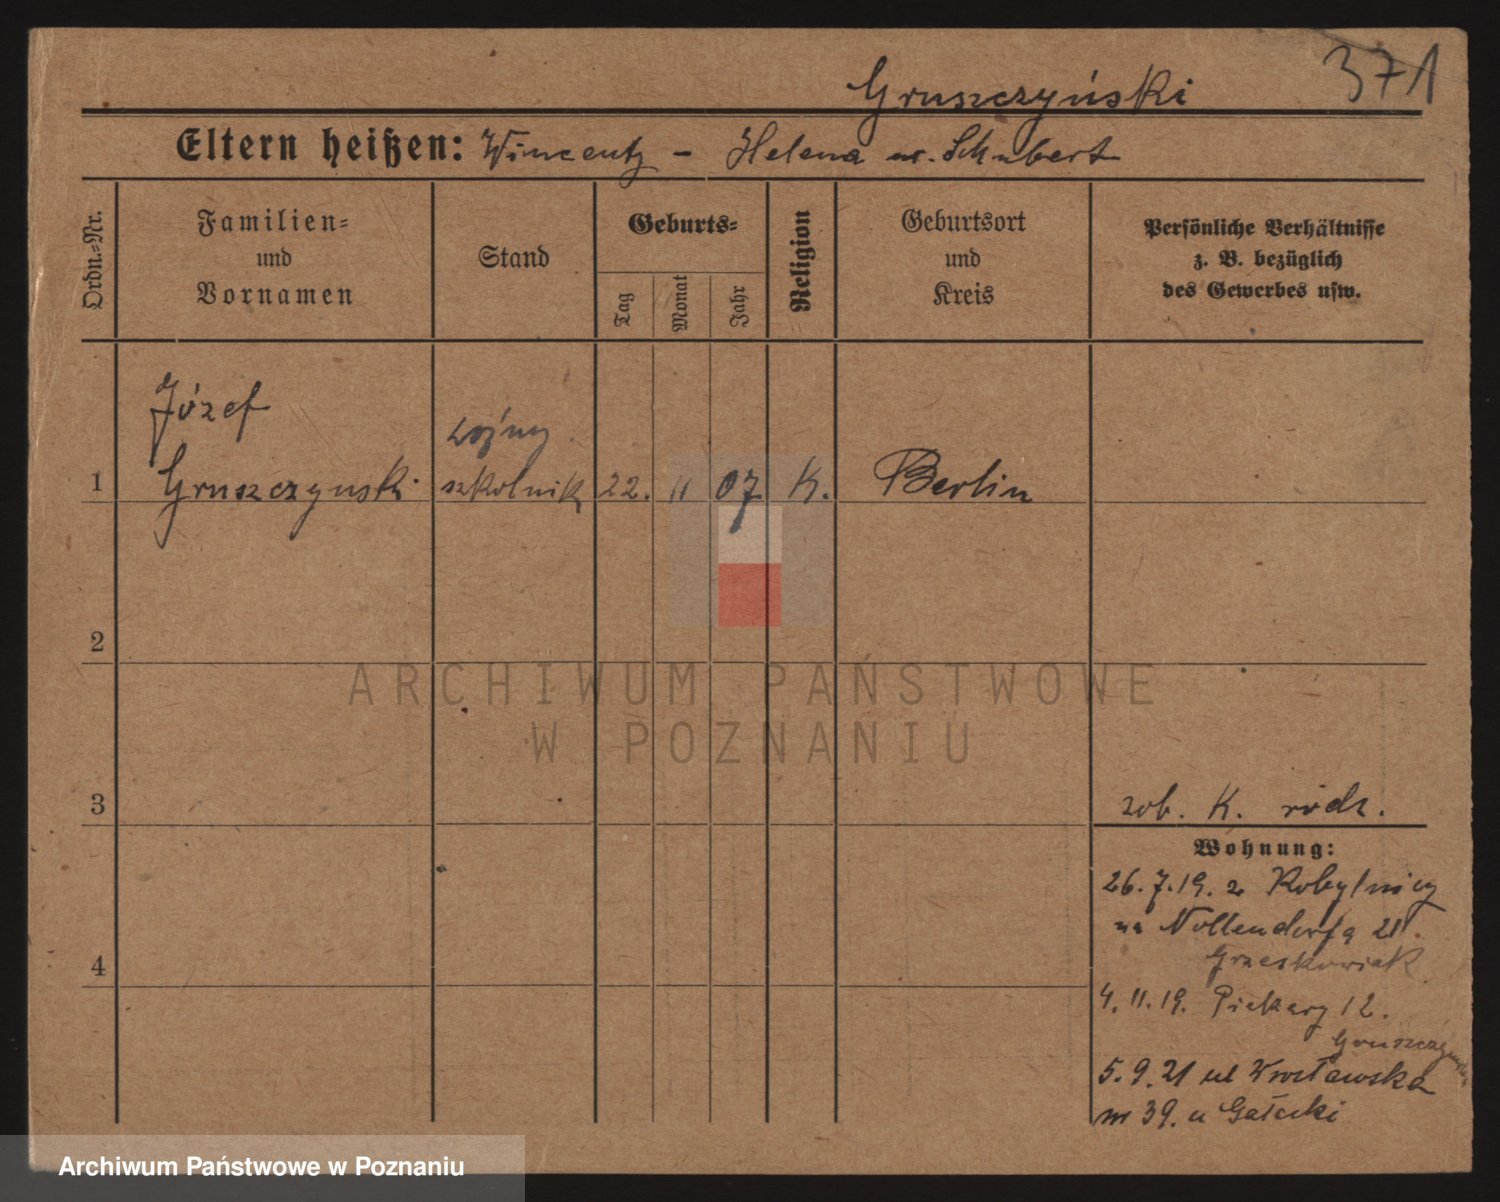 371
Gruszczyński
Eltern heißen: Wincenty - Helena ur. Schubert
Ordn.-Nr.
Familien-
und
Vornamen
Stand
Geburts-
Tag
Monat
Jahr
Religion
Geburtsort
und
Kreis
Persönliche Verhältnisse
z. B. bezüglich
des Gewerbes usw.
Józef
woźny
1 Gruszczynski szkolnik 22. 11 07 K. Berlin
2
ARCHIWUM PAŃSTWOWE
W POZNANIU
3
zob. K. rodz.
Wohnung:
26.7.19. z Kobylnicy
na Nollendorfa 21.
Grześkowiak
4
4.11.19. Piekary 12.
Gruszczyński
5.9.21 ul Wrocławska
nr 39. u Gałecki
Archiwum Państwowe w Poznaniu